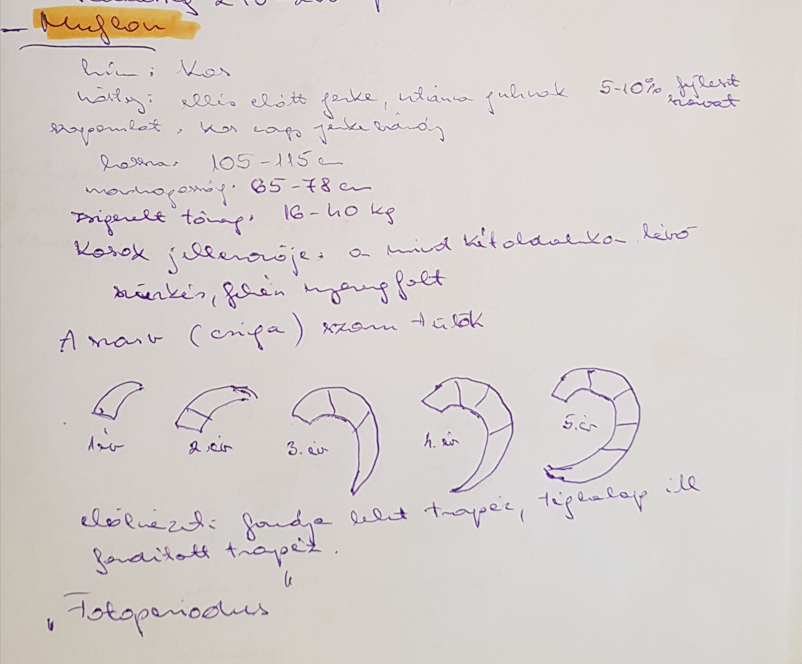 – Muflon
hím: Kos
nőstény: ellés előtt jerke, utána juhnak 5-10% fejleszt szarvat
szaporulat: kos vagy jerke bárány
hossza: 105-115 cm
marmagasság: 65-78 cm
zsigerelt tömeg: 16-40 kg
Kosok jellemzője: a mind két oldalukon lévő
szürkés, fehér nyeregfolt
A szarv (csiga) szaru tülök
1. év 2. év 3. év 4. év 5. év
elölnézet: formája lehet trapéz, téglalap ill
fordított trapéz.
"Fotoperiodus"